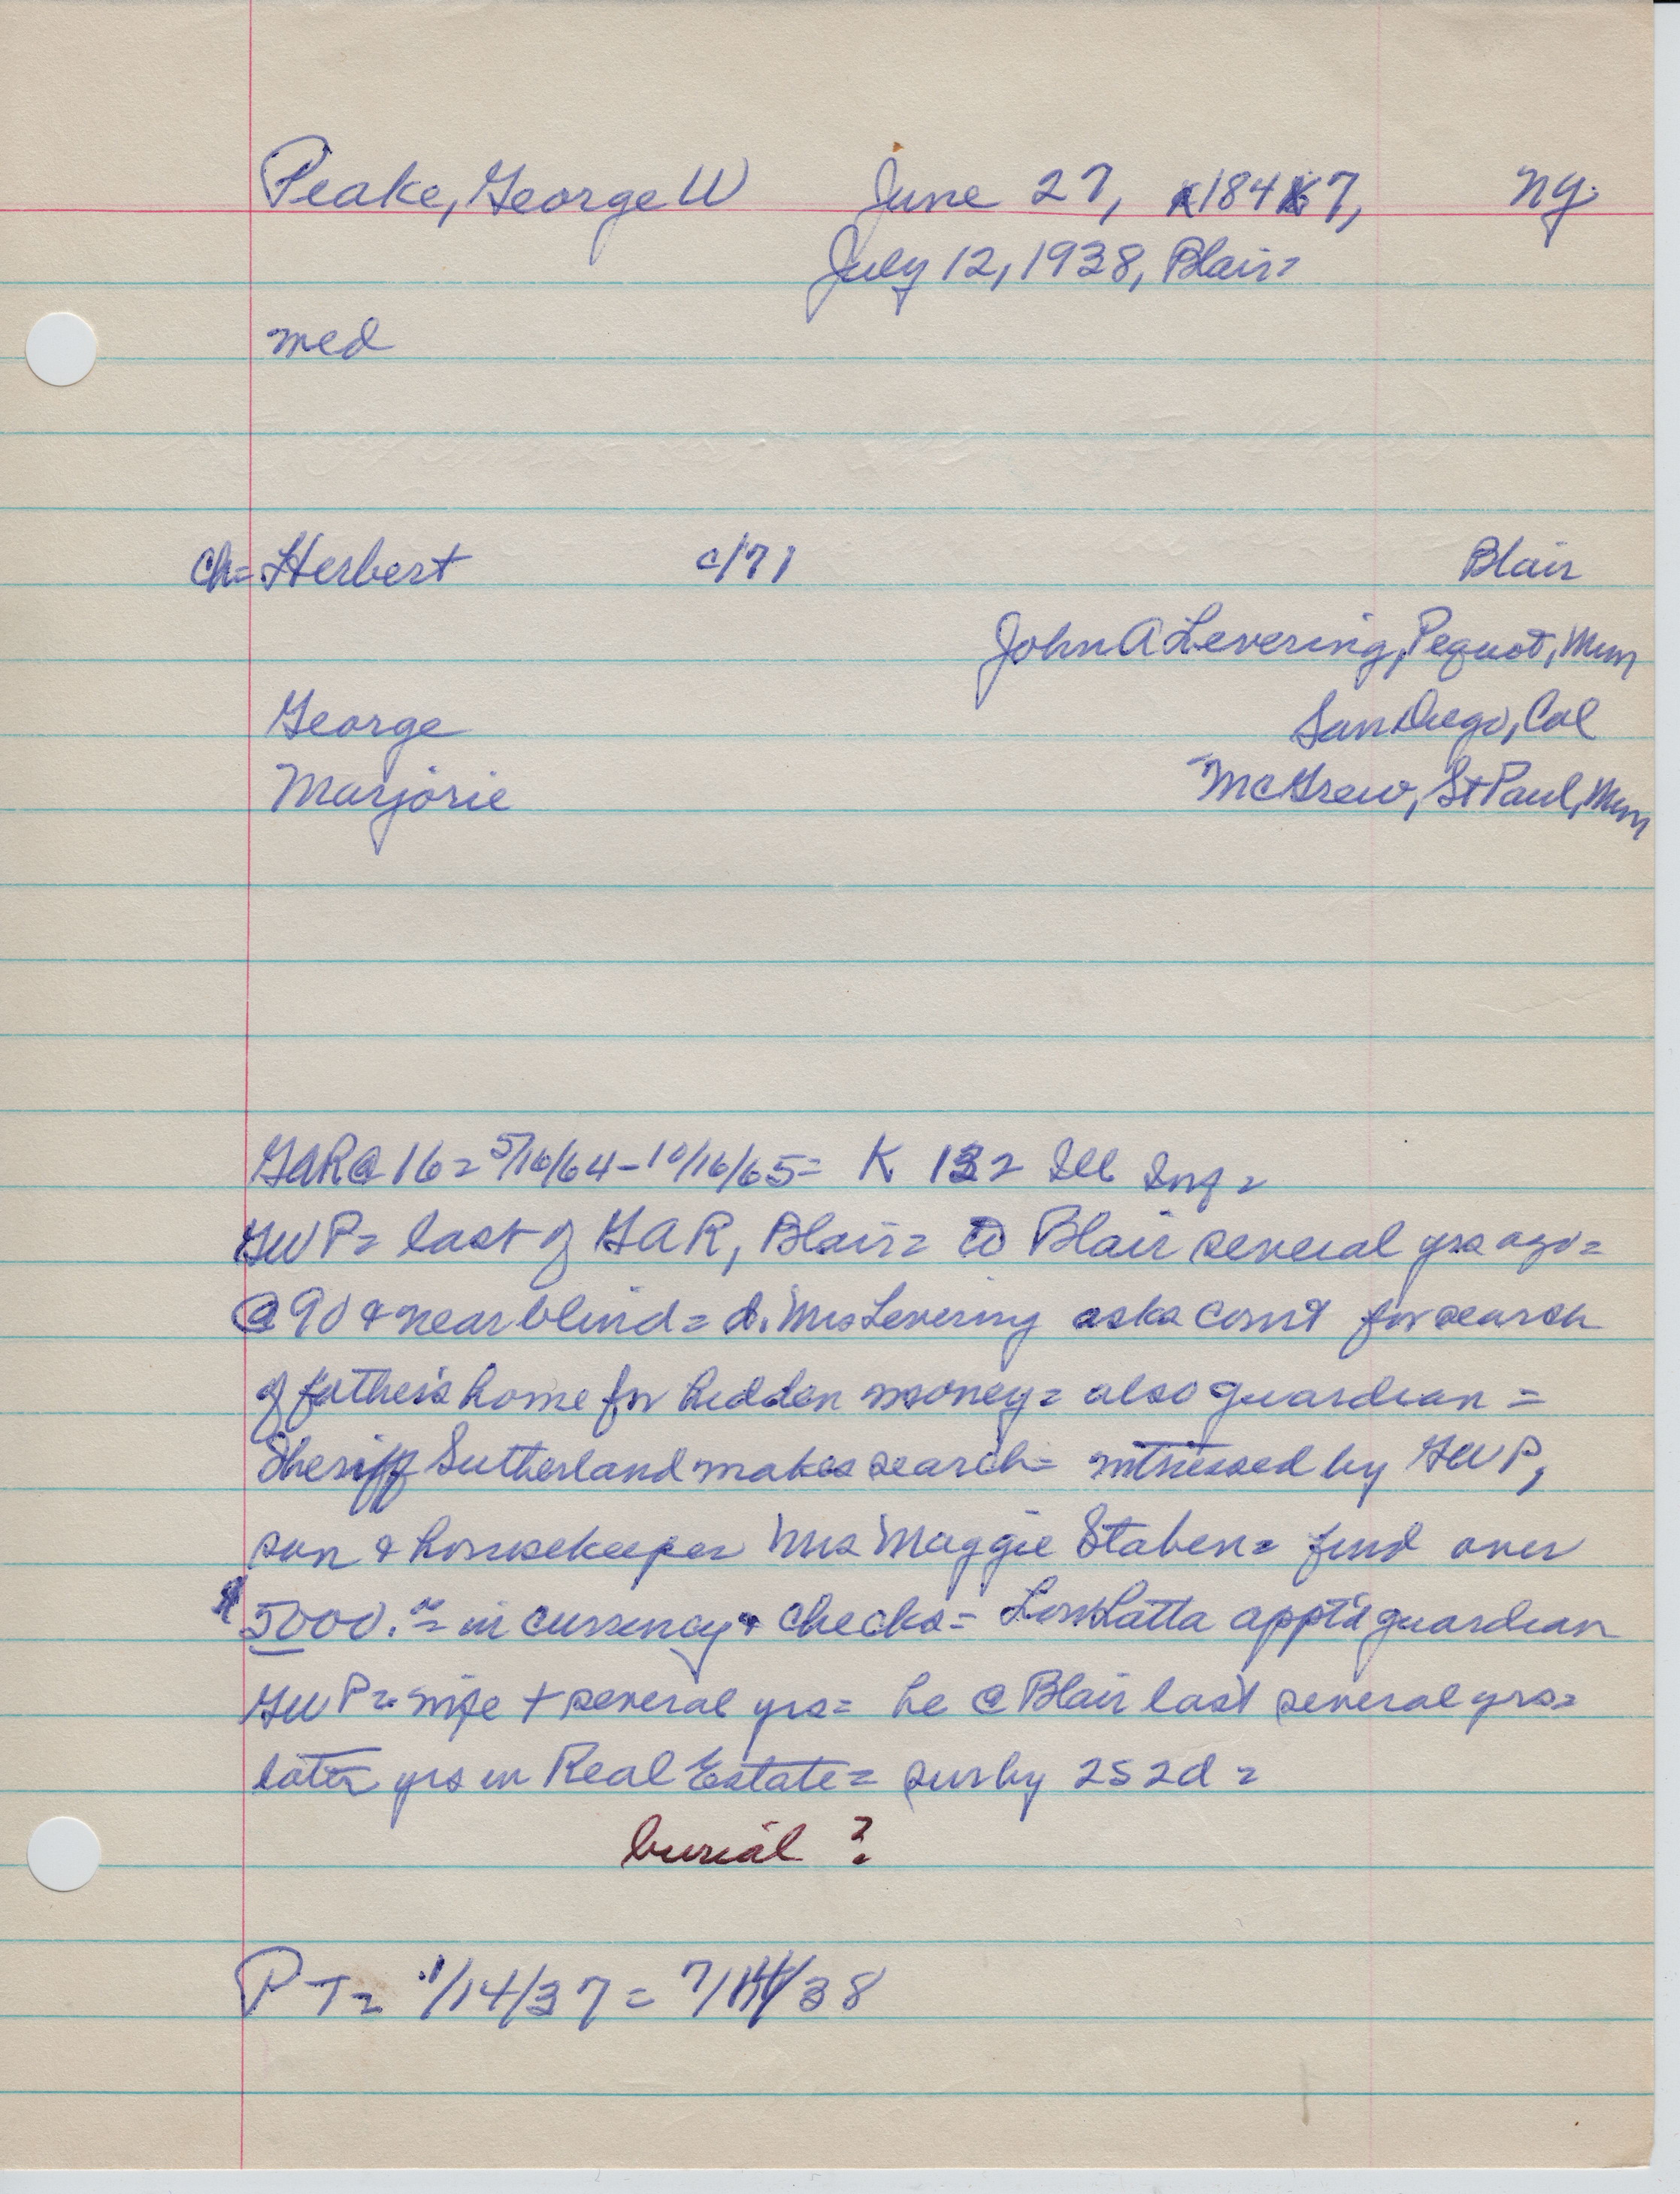 Peake, George W June 27, 1847, NY.
July 12, 1938, Blair=
med
Ch= Herbert c/71 Blair
John A Levering, Pequot, Minn
George San Diego, Cal
Marjorie McGrew, St Paul, Minn
GAR @ 16 = 5/16/64-10/16/65= K 132 Ill Inf =
GWP= last of GAR, Blair= to Blair several yrs ago=
@ 90 & near blind= d. Mrs Levering asks court for search
of father's home for hidden money= also guardian =
Sheriff Sutherland makes search= witnessed by GWP,
son & housekeeper Mrs Maggie Staben= find over
$5000.= in currency & checks= Latta appt'd guardian
GWP= wife + several yrs= he @ Blair last several yrs=
later yrs in Real Estate= sur by 2s 2d =
burial ?
PT= 1/14/37 = 7/14/38